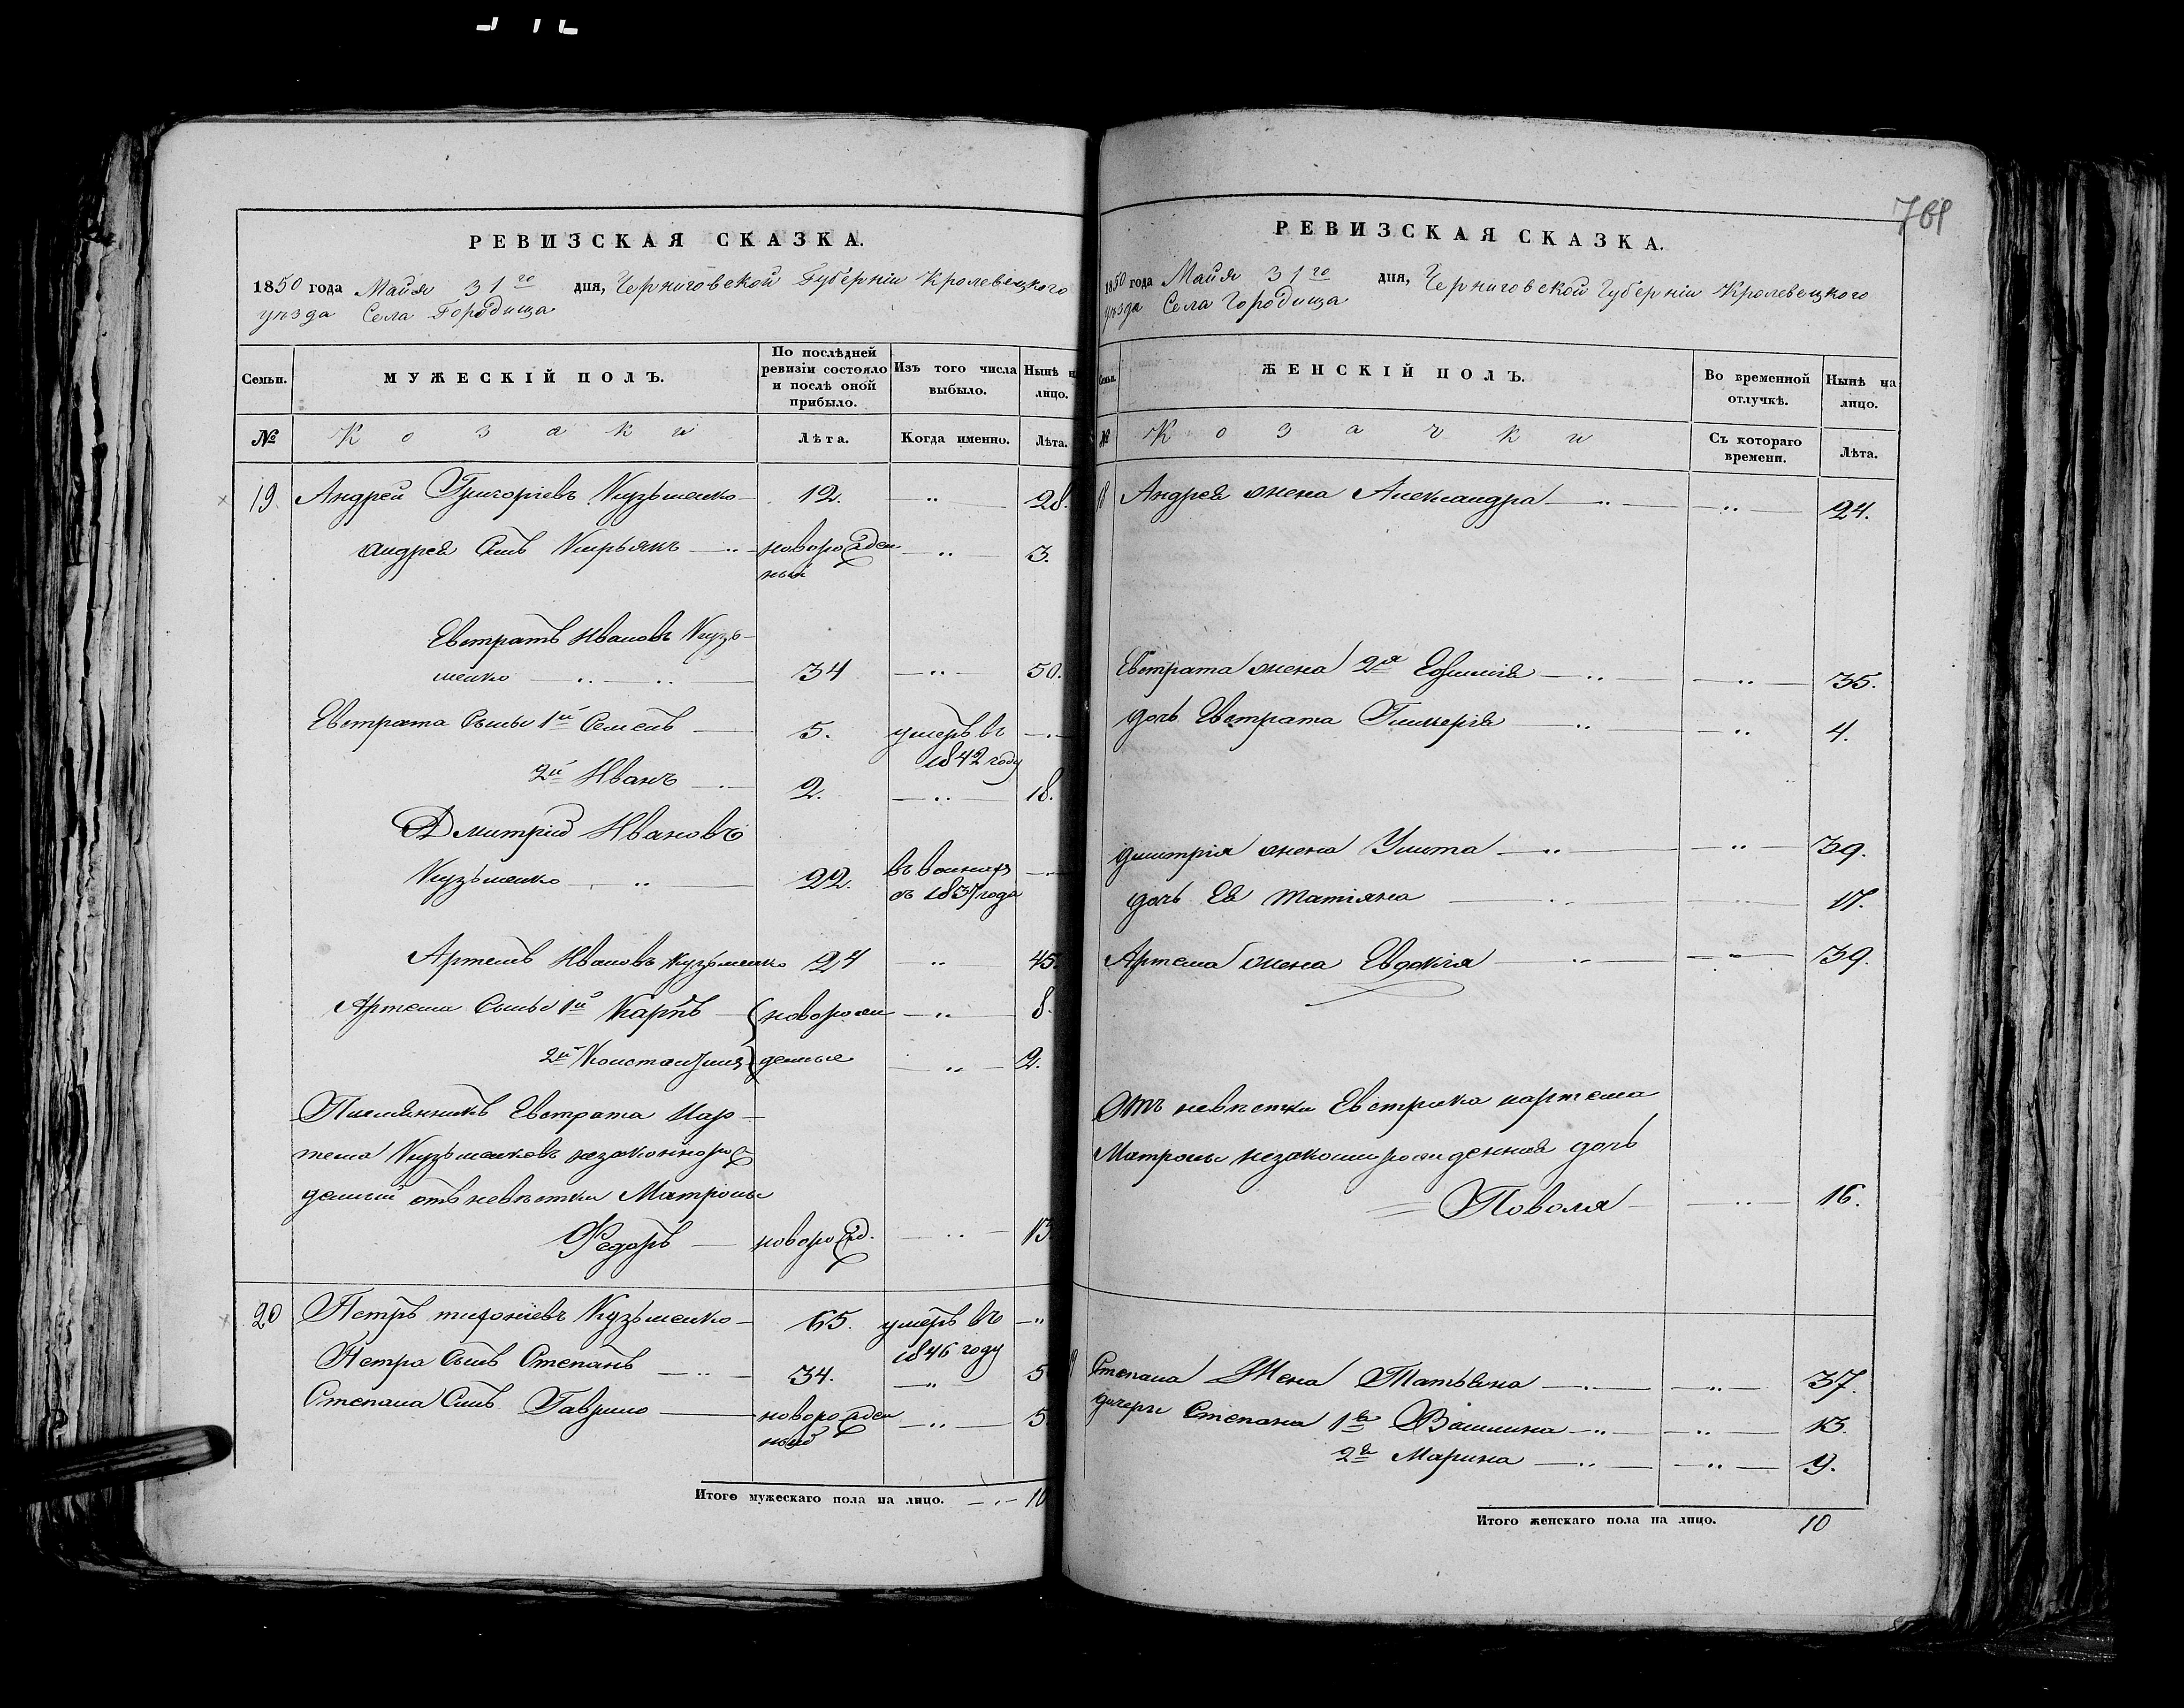 769
РЕВИЗСКАЯ СКАЗКА.
1850 года Майя 31го дня, Черниговской Губерніи Кролевецкого
уѣзда Села Городища
Семьи.
МУЖЕСКІЙ ПОЛЪ.
По послѣдней ревизіи состояло и послѣ оной прибыло.
Изъ того числа выбыло.
Нынѣ на лицо.
№
Козаки
Лѣта.
Когда именно.
Лѣта.
19 Андрей Григоріевъ Кузьменко 12. 28.
Андрея Сынъ Кирьякъ новорожден 3.
ный
Евстратъ Ивановъ Кузь-
менко 34 50.
Евстрата Сыны 1й Семенъ 5. умеръ въ
1842 году
2й Иванъ 2. 18.
Дмитрій Ивановъ
Кузьменко 22. въ
съ 1837 года
Артемъ Ивановъ Кузьменко 24 45.
Артема Сыны 1й Карпъ новорож 8.
2й Константинъ денные 2.
Племянникъ Евстрата и Ар-
тема Кузьменковъ незаконнорож
денный отъ невѣстки Матроны
Федоръ новорожд. 13
20 Петръ Кузьменко 65. умеръ въ
1846 году
Петра Сынъ Степанъ 34. 5
Степана Сынъ Гаврило новорожден 5
ный
Итого мужескаго пола на лицо. 10
РЕВИЗСКАЯ СКАЗКА.
1850 года Майя 31го дня, Черниговской Губерніи Кролевецкого
уѣзда Села Городища
Семьи.
ЖЕНСКІЙ ПОЛЪ.
Во временной отлучкѣ.
Нынѣ на лицо.
№
Козачки
Съ котораго времени.
Лѣта.
Андрея жена Александра 24.
Евстрата жена 2я Евфимія 35.
дочь Евстрата Гликерія 4.
Дмитрія жена Улита 39.
дочь Ея Татіяна 17.
Артема жена Евдокія 39.
Отъ невѣстки Евстрата и Артема
Матроны незаконнорожденная дочь
16.
Степана Жена Татьяна 37.
дочери Степана 1я 13.
2я Марина 9.
Итого женскаго пола на лицо. 10